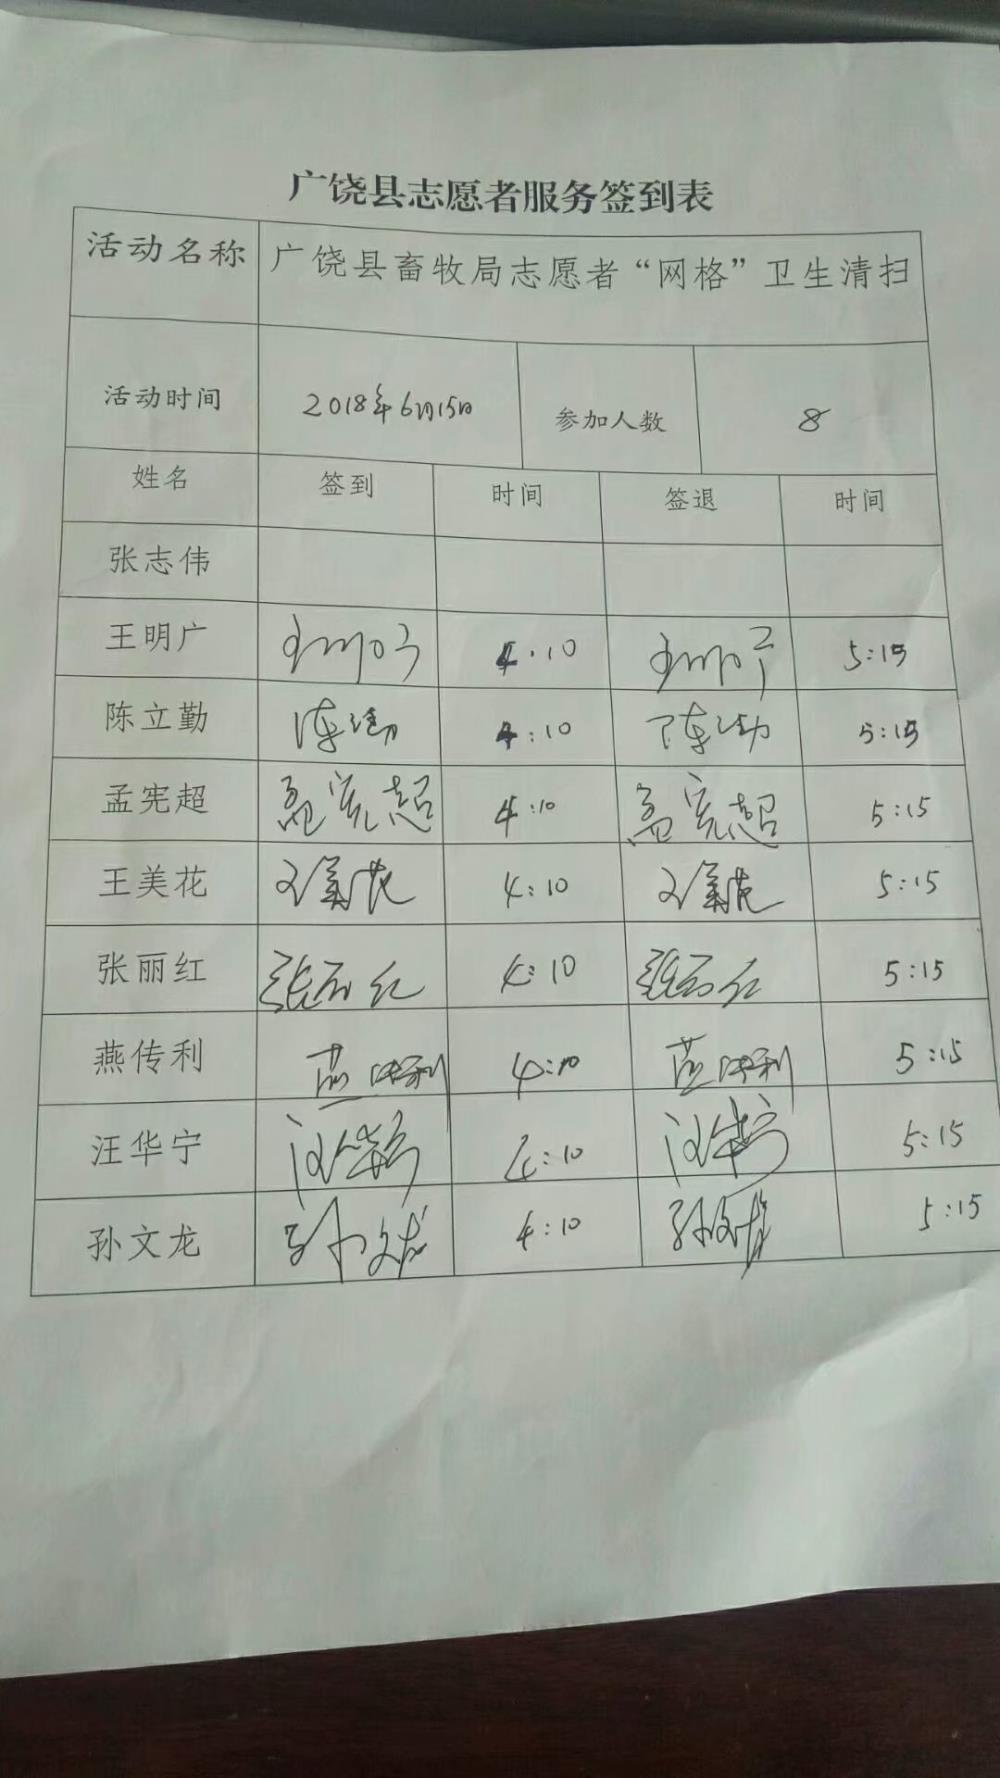 广饶县志愿者服务签到表
活动名称 广饶县畜牧局志愿者“网格”卫生清扫
活动时间 2018年6月15日 参加人数 8
姓名 签到 时间 签退 时间
张志伟
王明广 王明广 4:10 王明广 5:15
陈立勤 陈立勤 4:10 陈立勤 5:15
孟宪超 孟宪超 4:10 孟宪超 5:15
王美花 王美花 4:10 王美花 5:15
张丽红 张丽红 4:10 张丽红 5:15
燕传利 燕传利 4:10 燕传利 5:15
汪华宁 汪华宁 4:10 汪华宁 5:15
孙文龙 孙文龙 4:10 孙文龙 5:15